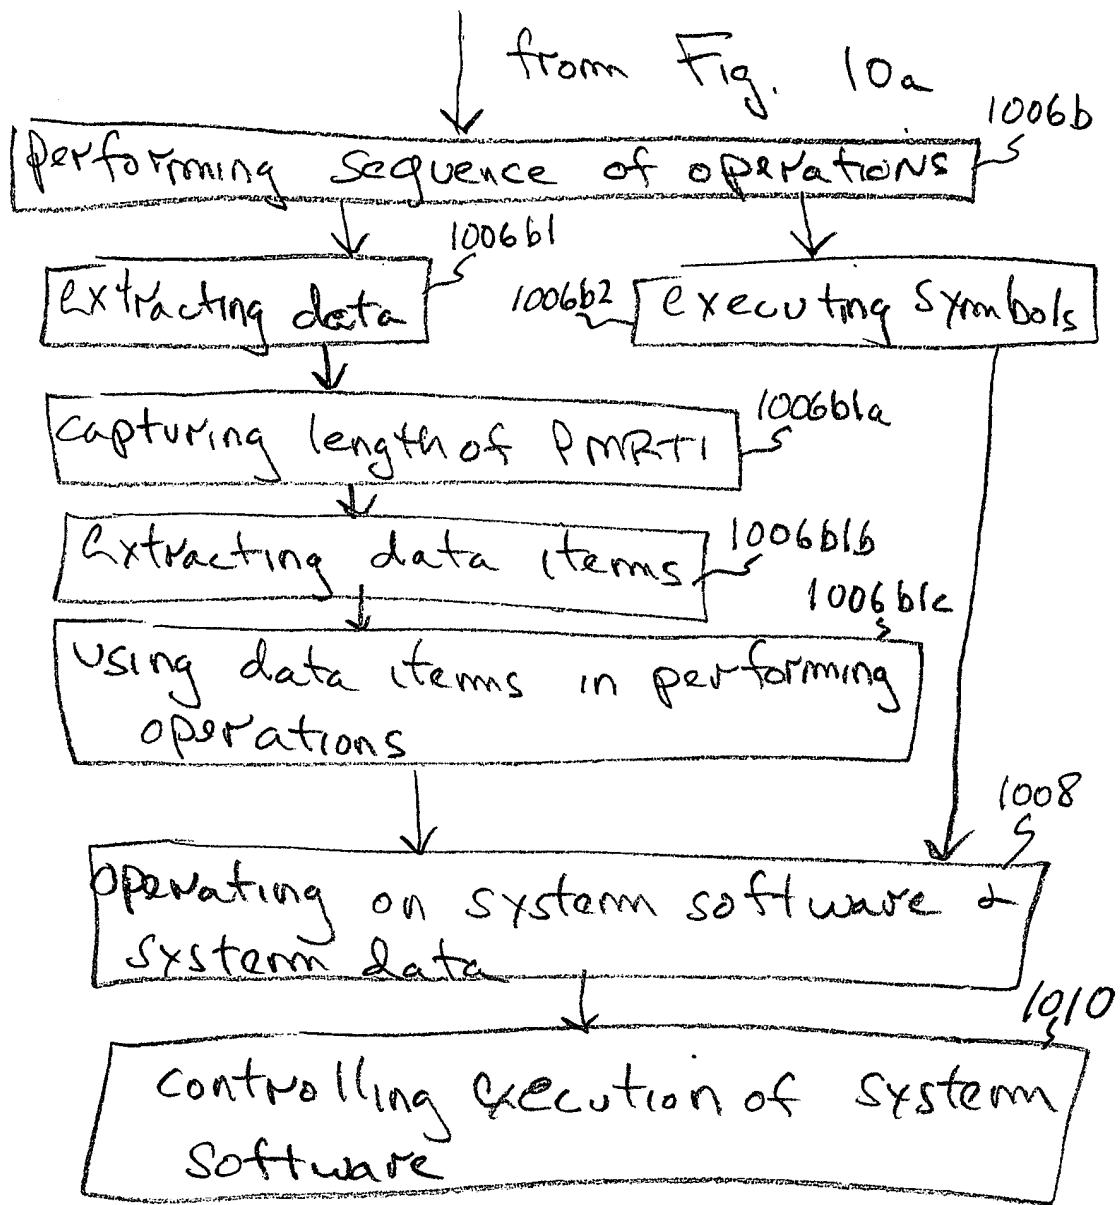 from Fig. 10a
1006b
performing sequence of operations
1006b1
extracting data
1006b2
executing symbols
1006b1a
capturing length of PMRTI
extracting data items
1006b1b
1006b1c
using data items in performing
operations
1008
operating on system software &
system data
1010
controlling execution of system
software